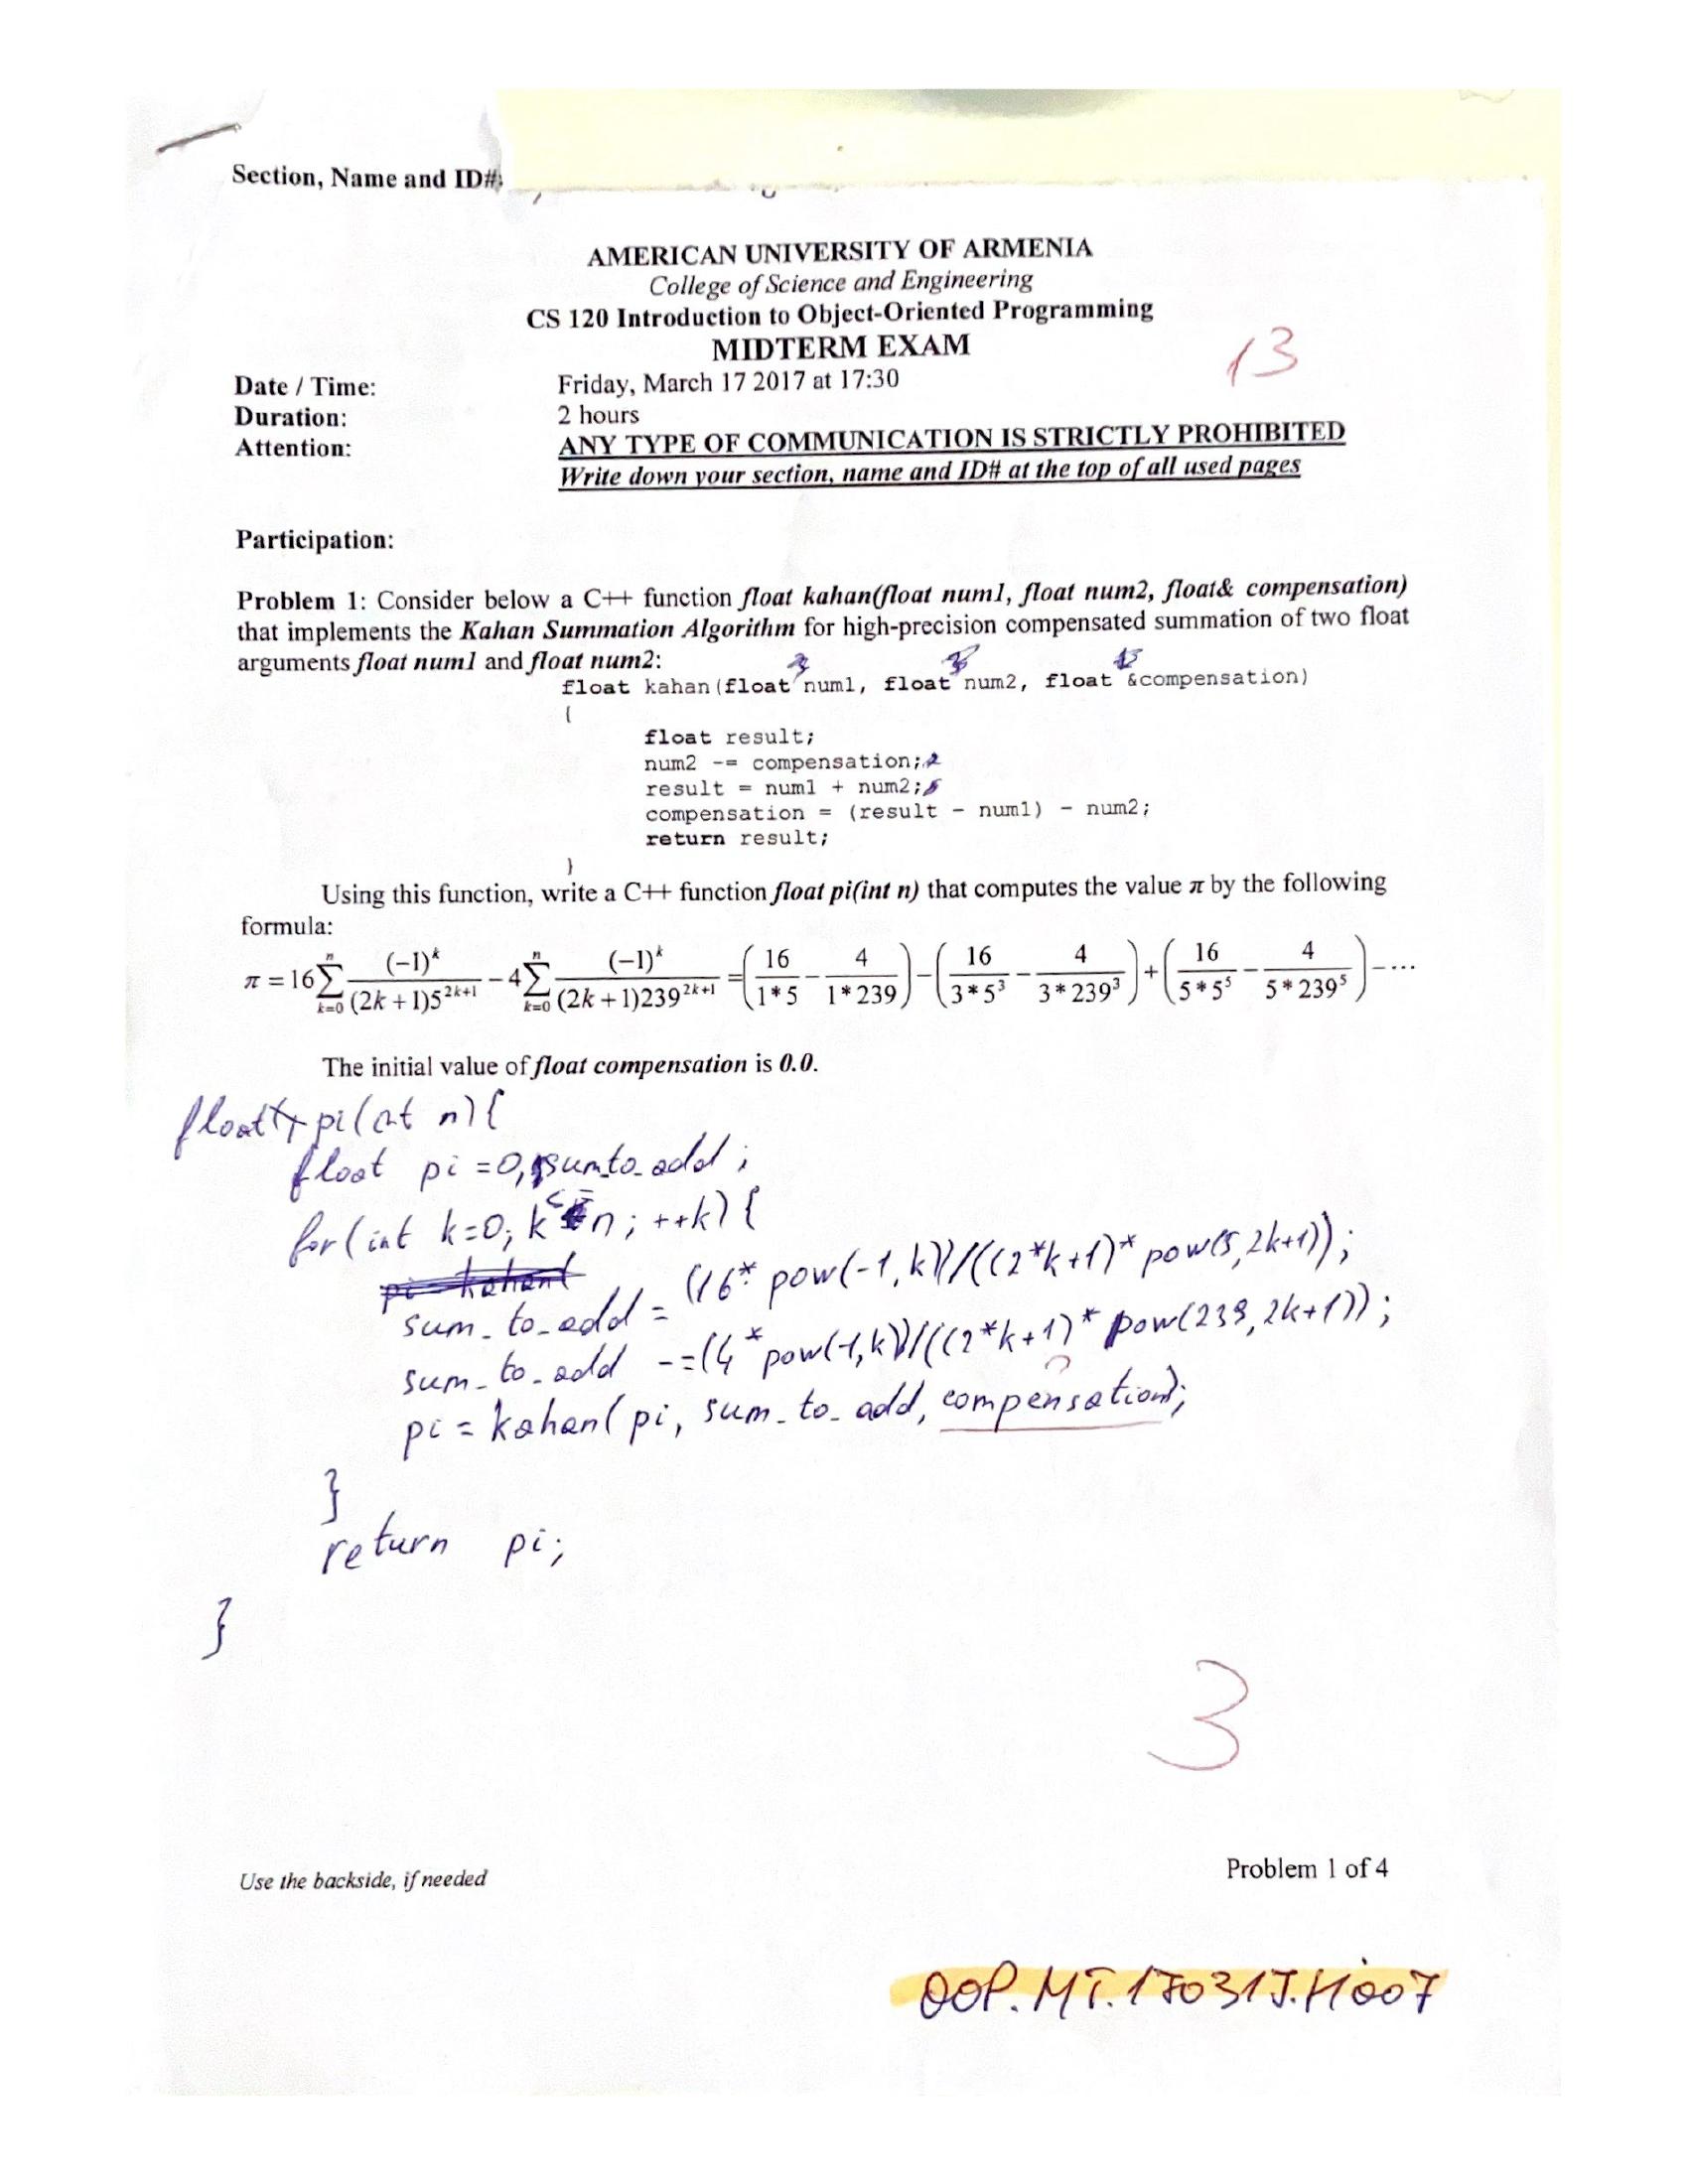 Section, Name and ID#:
AMERICAN UNIVERSITY OF ARMENIA
College of Science and Engineering
CS 120 Introduction to Object-Oriented Programming
MIDTERM EXAM
13
Date / Time: Friday, March 17 2017 at 17:30
Duration: 2 hours
Attention: ANY TYPE OF COMMUNICATION IS STRICTLY PROHIBITED
Write down your section, name and ID# at the top of all used pages
Participation:
Problem 1: Consider below a C++ function float kahan(float num1, float num2, float& compensation)
that implements the Kahan Summation Algorithm for high-precision compensated summation of two float
arguments float num1 and float num2:
float kahan(float num1, float num2, float &compensation)
{
float result;
num2 -= compensation;
result = num1 + num2;
compensation = (result - num1) - num2;
return result;
}
Using this function, write a C++ function float pi(int n) that computes the value π by the following
formula:
π = 16 ∑_{k=0}^{n} (-1)^k / ((2k+1)5^{2k+1}) - 4 ∑_{k=0}^{n} (-1)^k / ((2k+1)239^{2k+1}) = (16/(1*5) - 4/(1*239)) - (16/(3*5^3) - 4/(3*239^3)) + (16/(5*5^5) - 4/(5*239^5)) - ...
The initial value of float compensation is 0.0.
float pi(int n){
float pi = 0, sum_to_add;
for(int k=0; k <= n; ++k){
sum_to_add = (16*pow(-1,k))/((2*k+1)*pow(5,2k+1));
sum_to_add -= (4*pow(-1,k))/((2*k+1)*pow(239,2k+1));
pi = kahan(pi, sum_to_add, compensation);
}
return pi;
}
3
Use the backside, if needed
Problem 1 of 4
OOP.MT.170317.M007